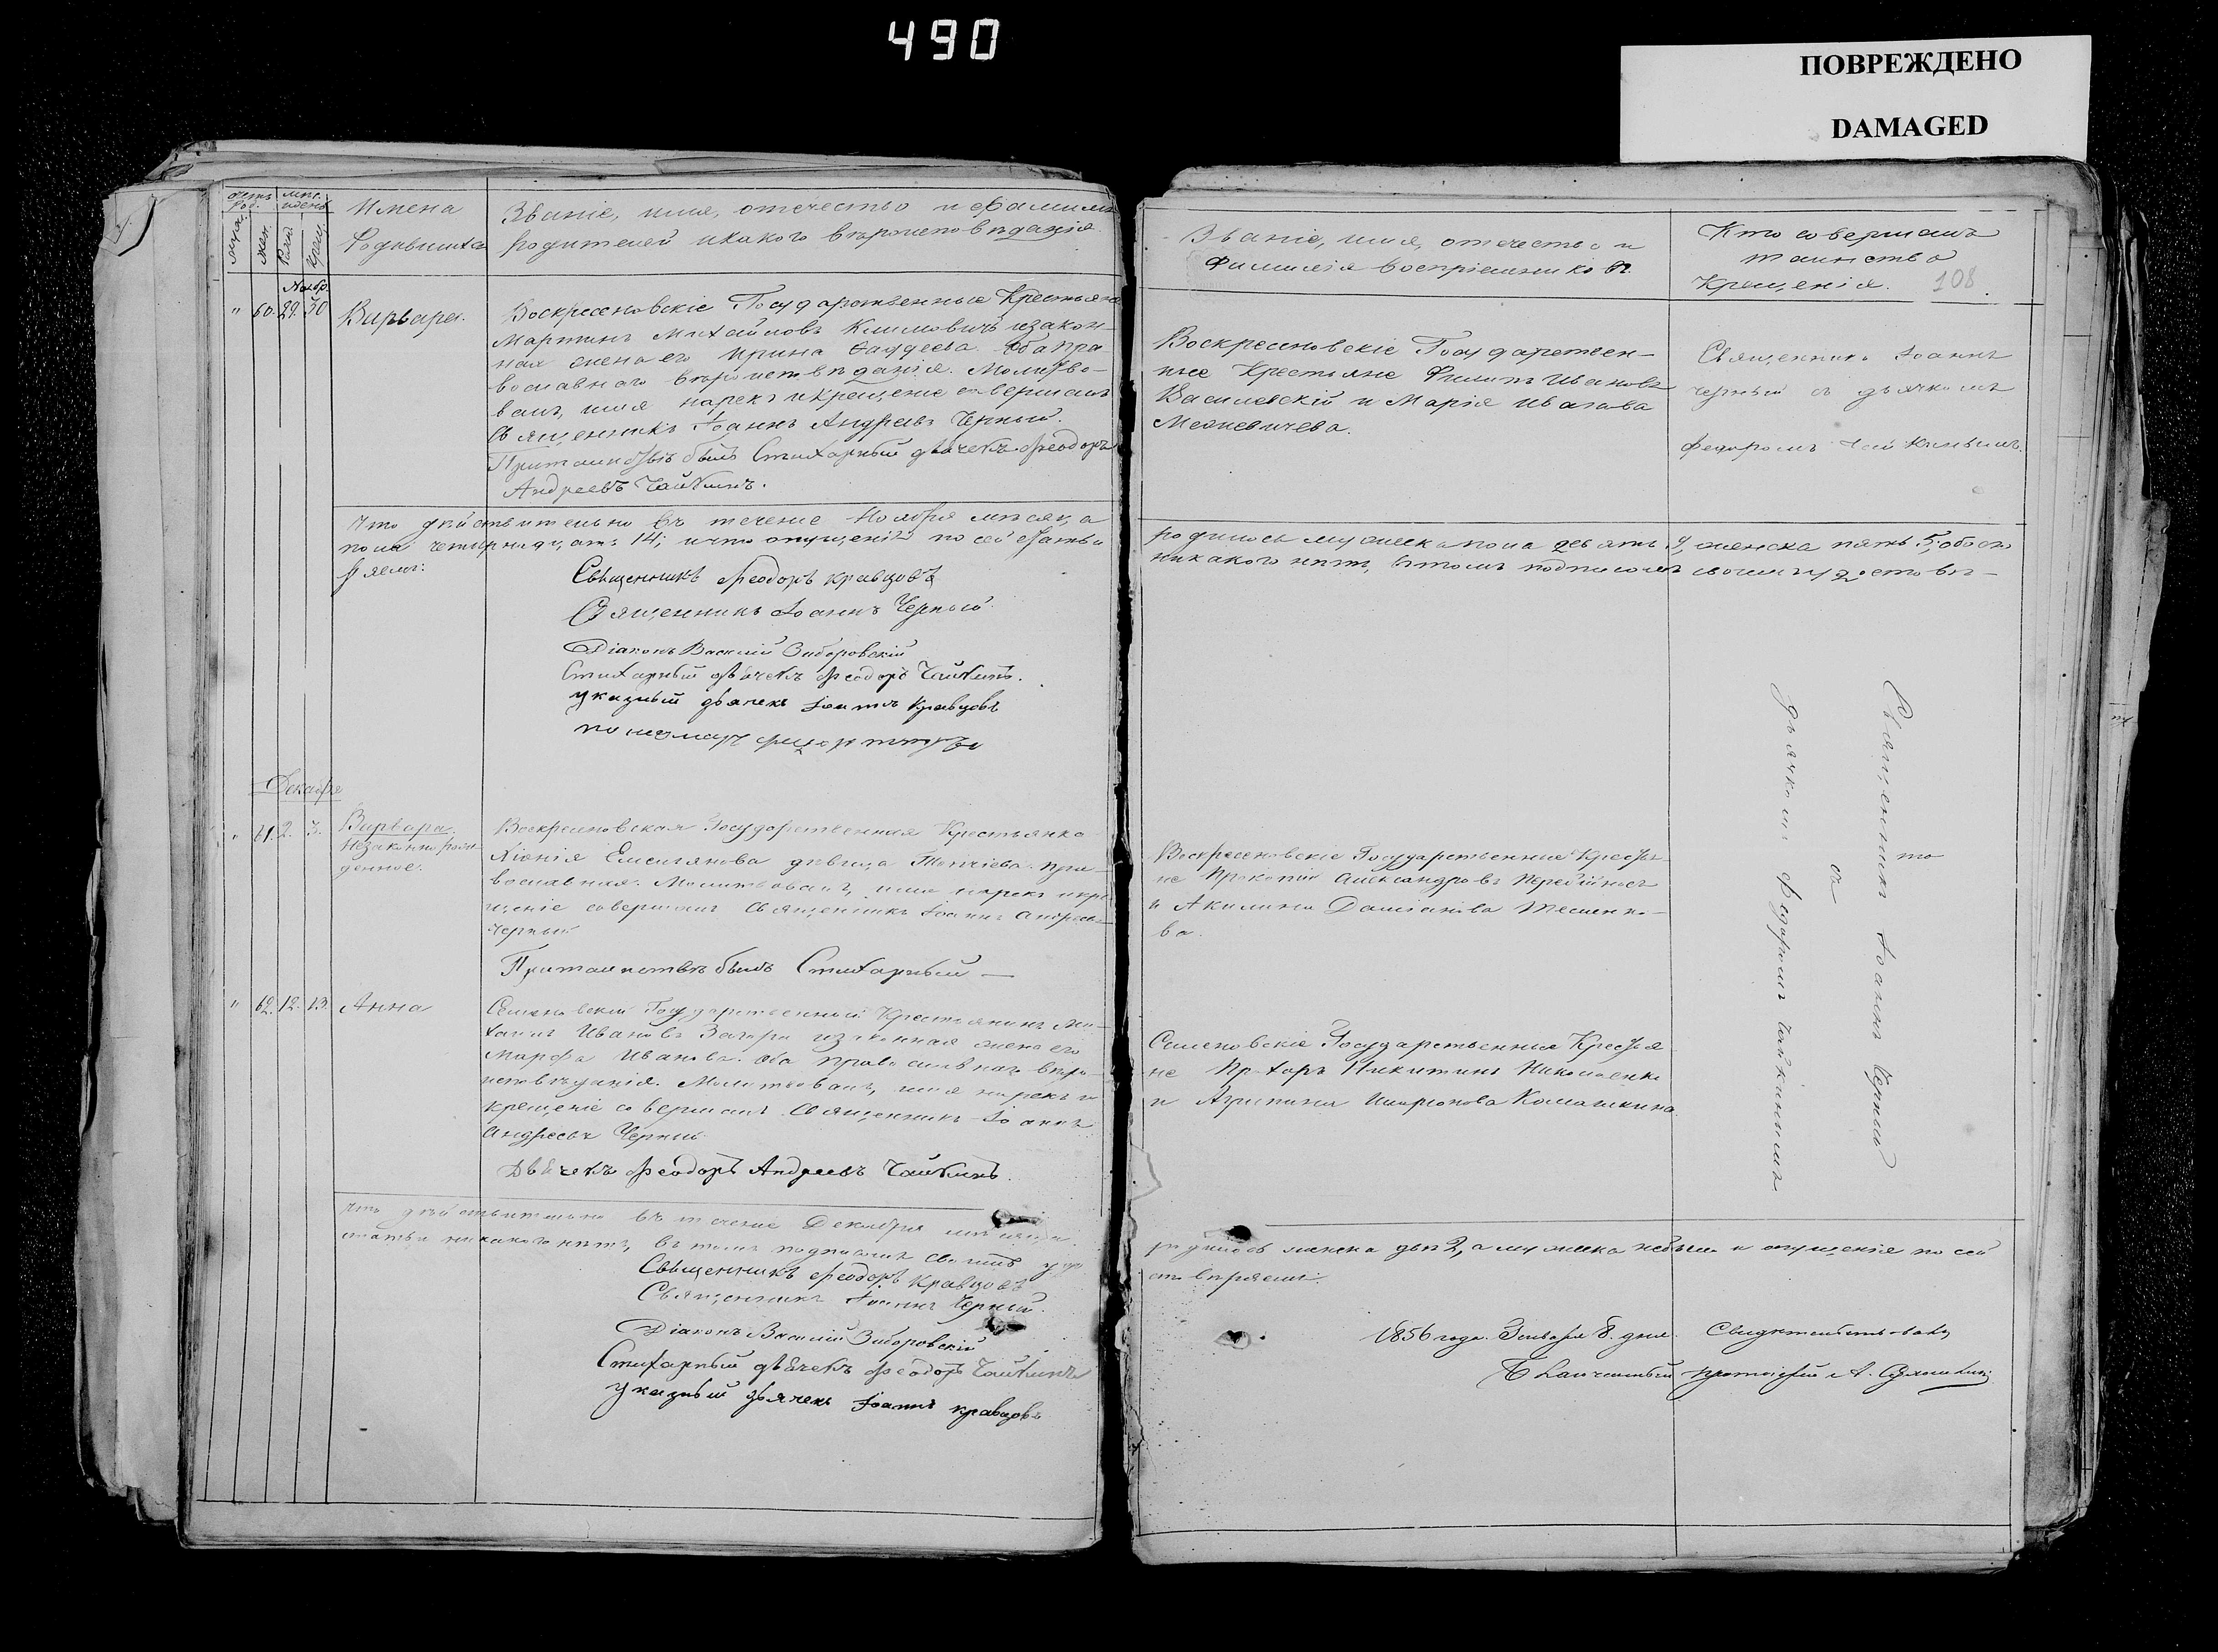 490
ПОВРЕЖДЕНО
DAMAGED
мѣс.
Имена
Родившихся
Званіе, имя, отечество и фамилія
родителей и какого вѣроисповѣданія.
Званіе, имя, отечество и
Фамилія воспріемниковъ
Кто совершалъ
таинство
Крещенія.
108
Ноябр.
" 60. 29. 30 Варвара.
Воскресеновскіе Государственные Крестьяне
Мартинъ Михайловъ Климовичъ и закон-
ная жена его Ирина Фаддеева оба пра-
вославнаго вѣроисповѣданія. Молитво-
валъ, имя нарекъ и крещеніе совершалъ
Священникъ Іоаннъ Андреевъ Черный.
При таинствѣ былъ Стихарный дьячекъ Феодоръ
Андреевъ Чайкинъ.
Воскресеновскіе Государствен-
ные Крестьяне Филипъ Ивановъ
Василевскій и Марія Иванова
Священникъ Іоаннъ
Черный съ дьячкомъ
Федоромъ Чайкинымъ.
Что дѣйствительно въ теченіе Ноября мѣсяца
родилось мужеска пола девять 9, женска пять 5, обоего
пола четырнадцать 14; и что опущеній по сей статьи
никакого нѣтъ, въ томъ подписомъ своимъ удостовѣ-
ряемъ:
Священникъ Феодоръ Кравцовъ
Священникъ Іоаннъ Черный
Діаконъ Василій Зиборовскій
Стихарный дьячекъ Феодоръ Чайкинъ.
Указный дьячекъ Іоаннъ Кравцовъ
Декабря
" 61. 2. 3. Варвара.
незаконнорож-
денное.
Воскресеновская Государственная Крестьянка
Хіонія Емельянова дѣвица пра-
вославная. Молитвовалъ, имя нарекъ и кре-
щеніе совершалъ Священникъ Іоаннъ Андреевъ
Черный
При таинствѣ былъ Стихарный —
Воскресеновскіе Государственные Крестья-
не Прокопій Александровъ
и Акилина Даміанова
ва.
тो
Священникъ Іоаннъ Черный
съ
дьячкомъ Федоромъ Чайкинымъ
" 62. 12. 13. Анна
Семеновскій Государственный Крестьянинъ Ми-
хаилъ Ивановъ и законная жена его
Марфа Иванова. Оба православнаго вѣро-
исповѣданія. Молитвовалъ, имя нарекъ и
крещеніе совершалъ Священникъ Іоаннъ
Андреевъ Черный.
Дьячекъ Феодоръ Андреевъ Чайкинъ.
Семеновскіе Государственные Крестья-
не Никитинъ Николаенко
и Агрипина Комашкина
Что дѣйствительно въ теченіе Декабря мѣсяца
родилось женска двѣ 2, а мужеска небыло и опущенія по сей
статьи никакого нѣтъ, въ томъ подписомъ своимъ удо
стовѣряемъ:
Священникъ Феодоръ Кравцовъ
Священникъ Іоаннъ Черный.
Діаконъ Василій Зиборовскій
Стихарный дьячекъ Феодоръ Чайкинъ
Указный дьячекъ Іоаннъ Кравцовъ
1856 года. Генваря 8. дня. Свидѣтельствовалъ
Благочинный Протоіерей А.